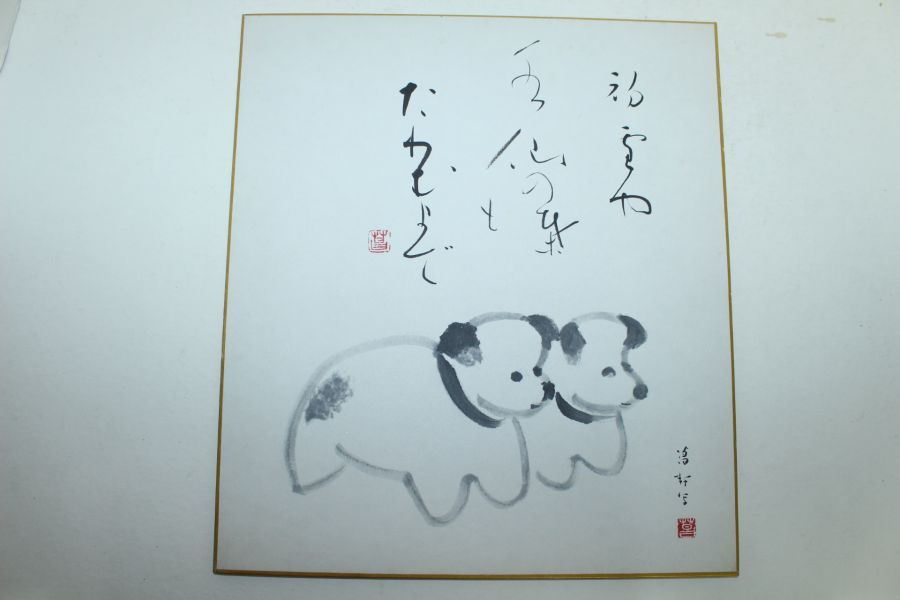 初雪や
水仙の葉
も
たわむまで